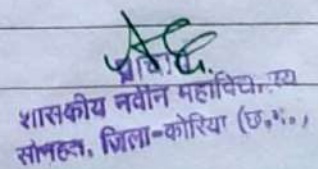 शासकीय नवीन महाविद्यालय
सोनहत, जिला-कोरिया (छ.ग.)